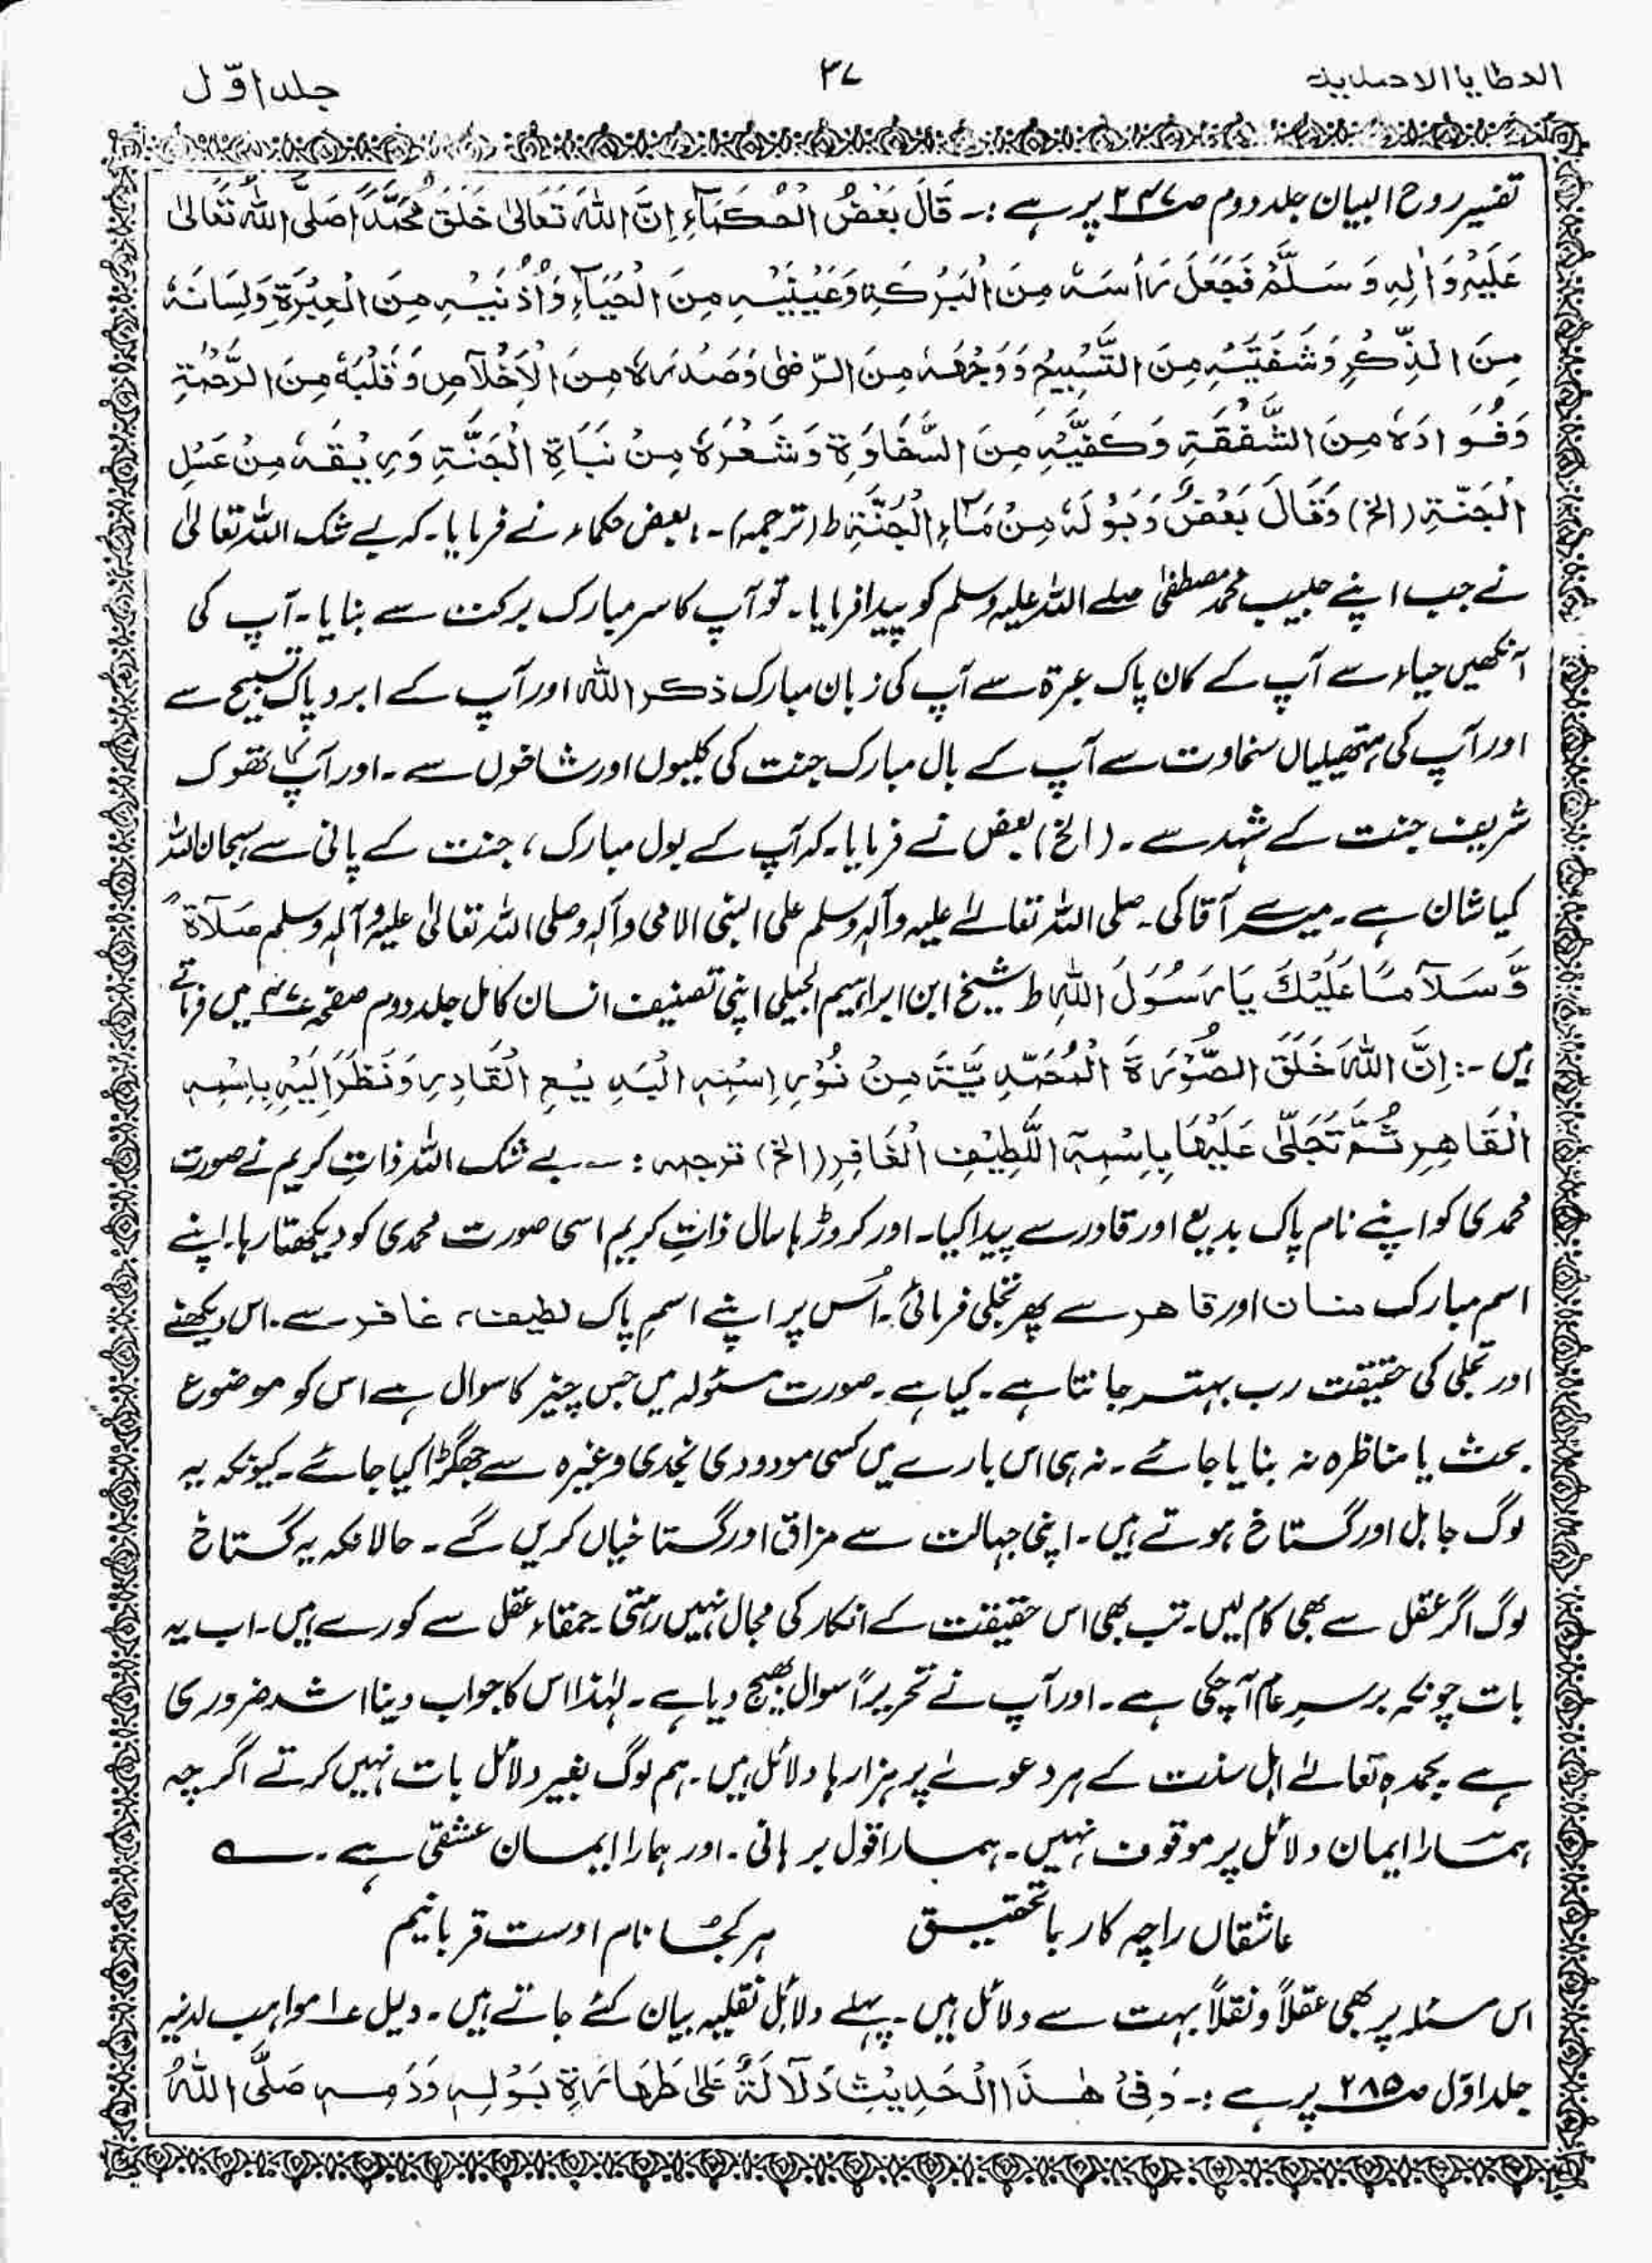 العطایا الاحمدیہ ۳۷ جلد اوّل
تفسیر روح البیان جلد دوم صـ۲۳۷ پر ہے :۔ قَالَ بَعْضُ الْحُكَمَآءِ اِنَّ اللّٰهَ تَعَالٰى خَلَقَ مُحَمَّدًا صَلَّى اللّٰهُ تَعَالٰى
عَلَيْهِ وَاٰلِهٖ وَسَلَّمْ فَجَعَلَ رَاْسَهٗ مِنَ الْبَرْكَةِ وَعَيْنَيْهِ مِنَ الْحَيَآءِ وَاُذْنَيْهِ مِنَ الْعِبْرَةِ وَلِسَانَهٗ
مِنَ الذِّكْرِ وَشَفَتَيْهِ مِنَ التَّسْبِيْحِ وَوَجْهَهٗ مِنَ الرِّضٰى وَصَدْرَهٗ مِنَ الْاِخْلَاصِ وَقَلْبَهٗ مِنَ الرَّحْمَةِ
وَفُوَادَهٗ مِنَ الشَّفْقَةِ وَكَفَّيْهِ مِنَ السَّخَاوَةِ وَشَعْرَهٗ مِنْ نَبَاةِ الْجَنَّةِ وَرِيْقَهٗ مِنْ عَسْلِ
الْجَنَّةِ (الخ) وَقَالَ بَعْضٌ وَبَوْلَهٗ مِنْ مَآءِ الْجَنَّةِ ط (ترجمہ)۔ بعض حکماء نے فرمایا۔ کہ بے شک اللہ تعالیٰ
نے جب اپنے حبیب محمد مصطفیٰ صلے اللہ علیہ وسلم کو پیدا فرمایا۔ تو آپ کا سر مبارک برکت سے بنایا۔ آپ کی
آنکھیں حیاء سے آپ کے کان پاک عبرۃ سے آپ کی زبان مبارک ذکر اللہ اور آپ کے ابرو پاک تسبیح سے
اور آپ کی ہتھیلیاں سخاوت سے آپ کے بال مبارک جنت کی کلیوں اور شاخوں سے۔ اور آپ کا تھوک
شریف جنت کے شہد سے۔ (الخ) بعض نے فرمایا۔ کہ آپ کے بول مبارک، جنت کے پانی سے سبحان اللہ
کیا شان ہے۔ میرے آقا کی۔ صلی اللہ تعالےٰ علیہ وآلہ وسلم علی النبی الامی وآلہ وصلی اللہ تعالیٰ علیہ وآلہ وسلم صَلَاۃً
وَّسَلَامًا عَلَيْكَ يَا رَسُوْلَ اللّٰهِ ط شیخ ابن ابراہیم الجیلی اپنی تصنیف انسان کامل جلد دوم صفحہ ۴۷ میں فرماتے
ہیں :۔ اِنَّ اللّٰهَ خَلَقَ الصُّوْرَةَ الْمُحَمَّدِيَّةَ مِنْ نُوْرِ اِسْمِهِ الْبَدِيْعِ الْقَادِرِ وَنَظَرَ اِلَيْهِ بِاِسْمِهِ
الْقَاهِرِ ثُمَّ تَجَلّٰى عَلَيْهَا بِاِسْمِهِ اللَّطِيْفِ الْغَافِرِ (الخ) ترجمہ :۔ بے شک اللہ ذاتِ کریم نے صورت
محمدی کو اپنے نام پاک بدیع اور قادر سے پیدا کیا۔ اور کروڑہا سال ذاتِ کریم اسی صورت محمدی کو دیکھتا رہا۔ اپنے
اسم مبارک منان اور قاہر سے پھر تجلی فرمائی۔ اُس پر اپنے اسم پاک لطیف، غافر سے۔ اس دیکھنے
اور تجلی کی حقیقت رب بہتر جانتا ہے۔ کیا ہے۔ صورت مسئولہ میں جس چیز کا سوال ہے اس کو موضوع
بحث یا مناظرہ نہ بنایا جائے۔ نہ ہی اس بارے میں کسی مودودی نجدی وغیرہ سے جھگڑا کیا جائے۔ کیونکہ یہ
لوگ جاہل اور گستاخ ہوتے ہیں۔ اپنی جہالت سے مزاق اور گستاخیاں کریں گے۔ حالانکہ یہ گستاخ
لوگ اگر عقل سے بھی کام لیں۔ تب بھی اس حقیقت کے انکار کی مجال نہیں رہتی۔ حمقاء عقل سے کورے ہیں۔ اب یہ
بات چونکہ برسرِ عام آچکی ہے۔ اور آپ نے تحریراً سوال بھیج دیا ہے۔ لہٰذا اس کا جواب دینا اشد ضروری
ہے۔ بحمدہٖ تعالےٰ اہل سنت کے ہر دعوےٰ پر ہزارہا دلائل ہیں۔ ہم لوگ بغیر دلائل بات نہیں کرتے اگرچہ
ہمارا ایمان دلائل پر موقوف نہیں۔ ہمارا قول برہانی۔ اور ہمارا ایمان عشقی ہے۔ ؎
عاشقاں راچہ کار با تحقیق ہر کجُا نام اوست قربانیم
اس مسئلہ پر بھی عقلاً و نقلاً بہت سے دلائل ہیں۔ پہلے دلائل نقلیہ بیان کئے جاتے ہیں۔ دلیل ۱ مواہب لدنیہ
جلد اوّل صـ۲۸۵ پر ہے :۔ وَفِىْ هٰذَا الْحَدِيْثِ دَلَالَةٌ عَلٰى طَهَارَةِ بَوْلِهٖ وَدَمِهٖ صَلَّى اللّٰهُ